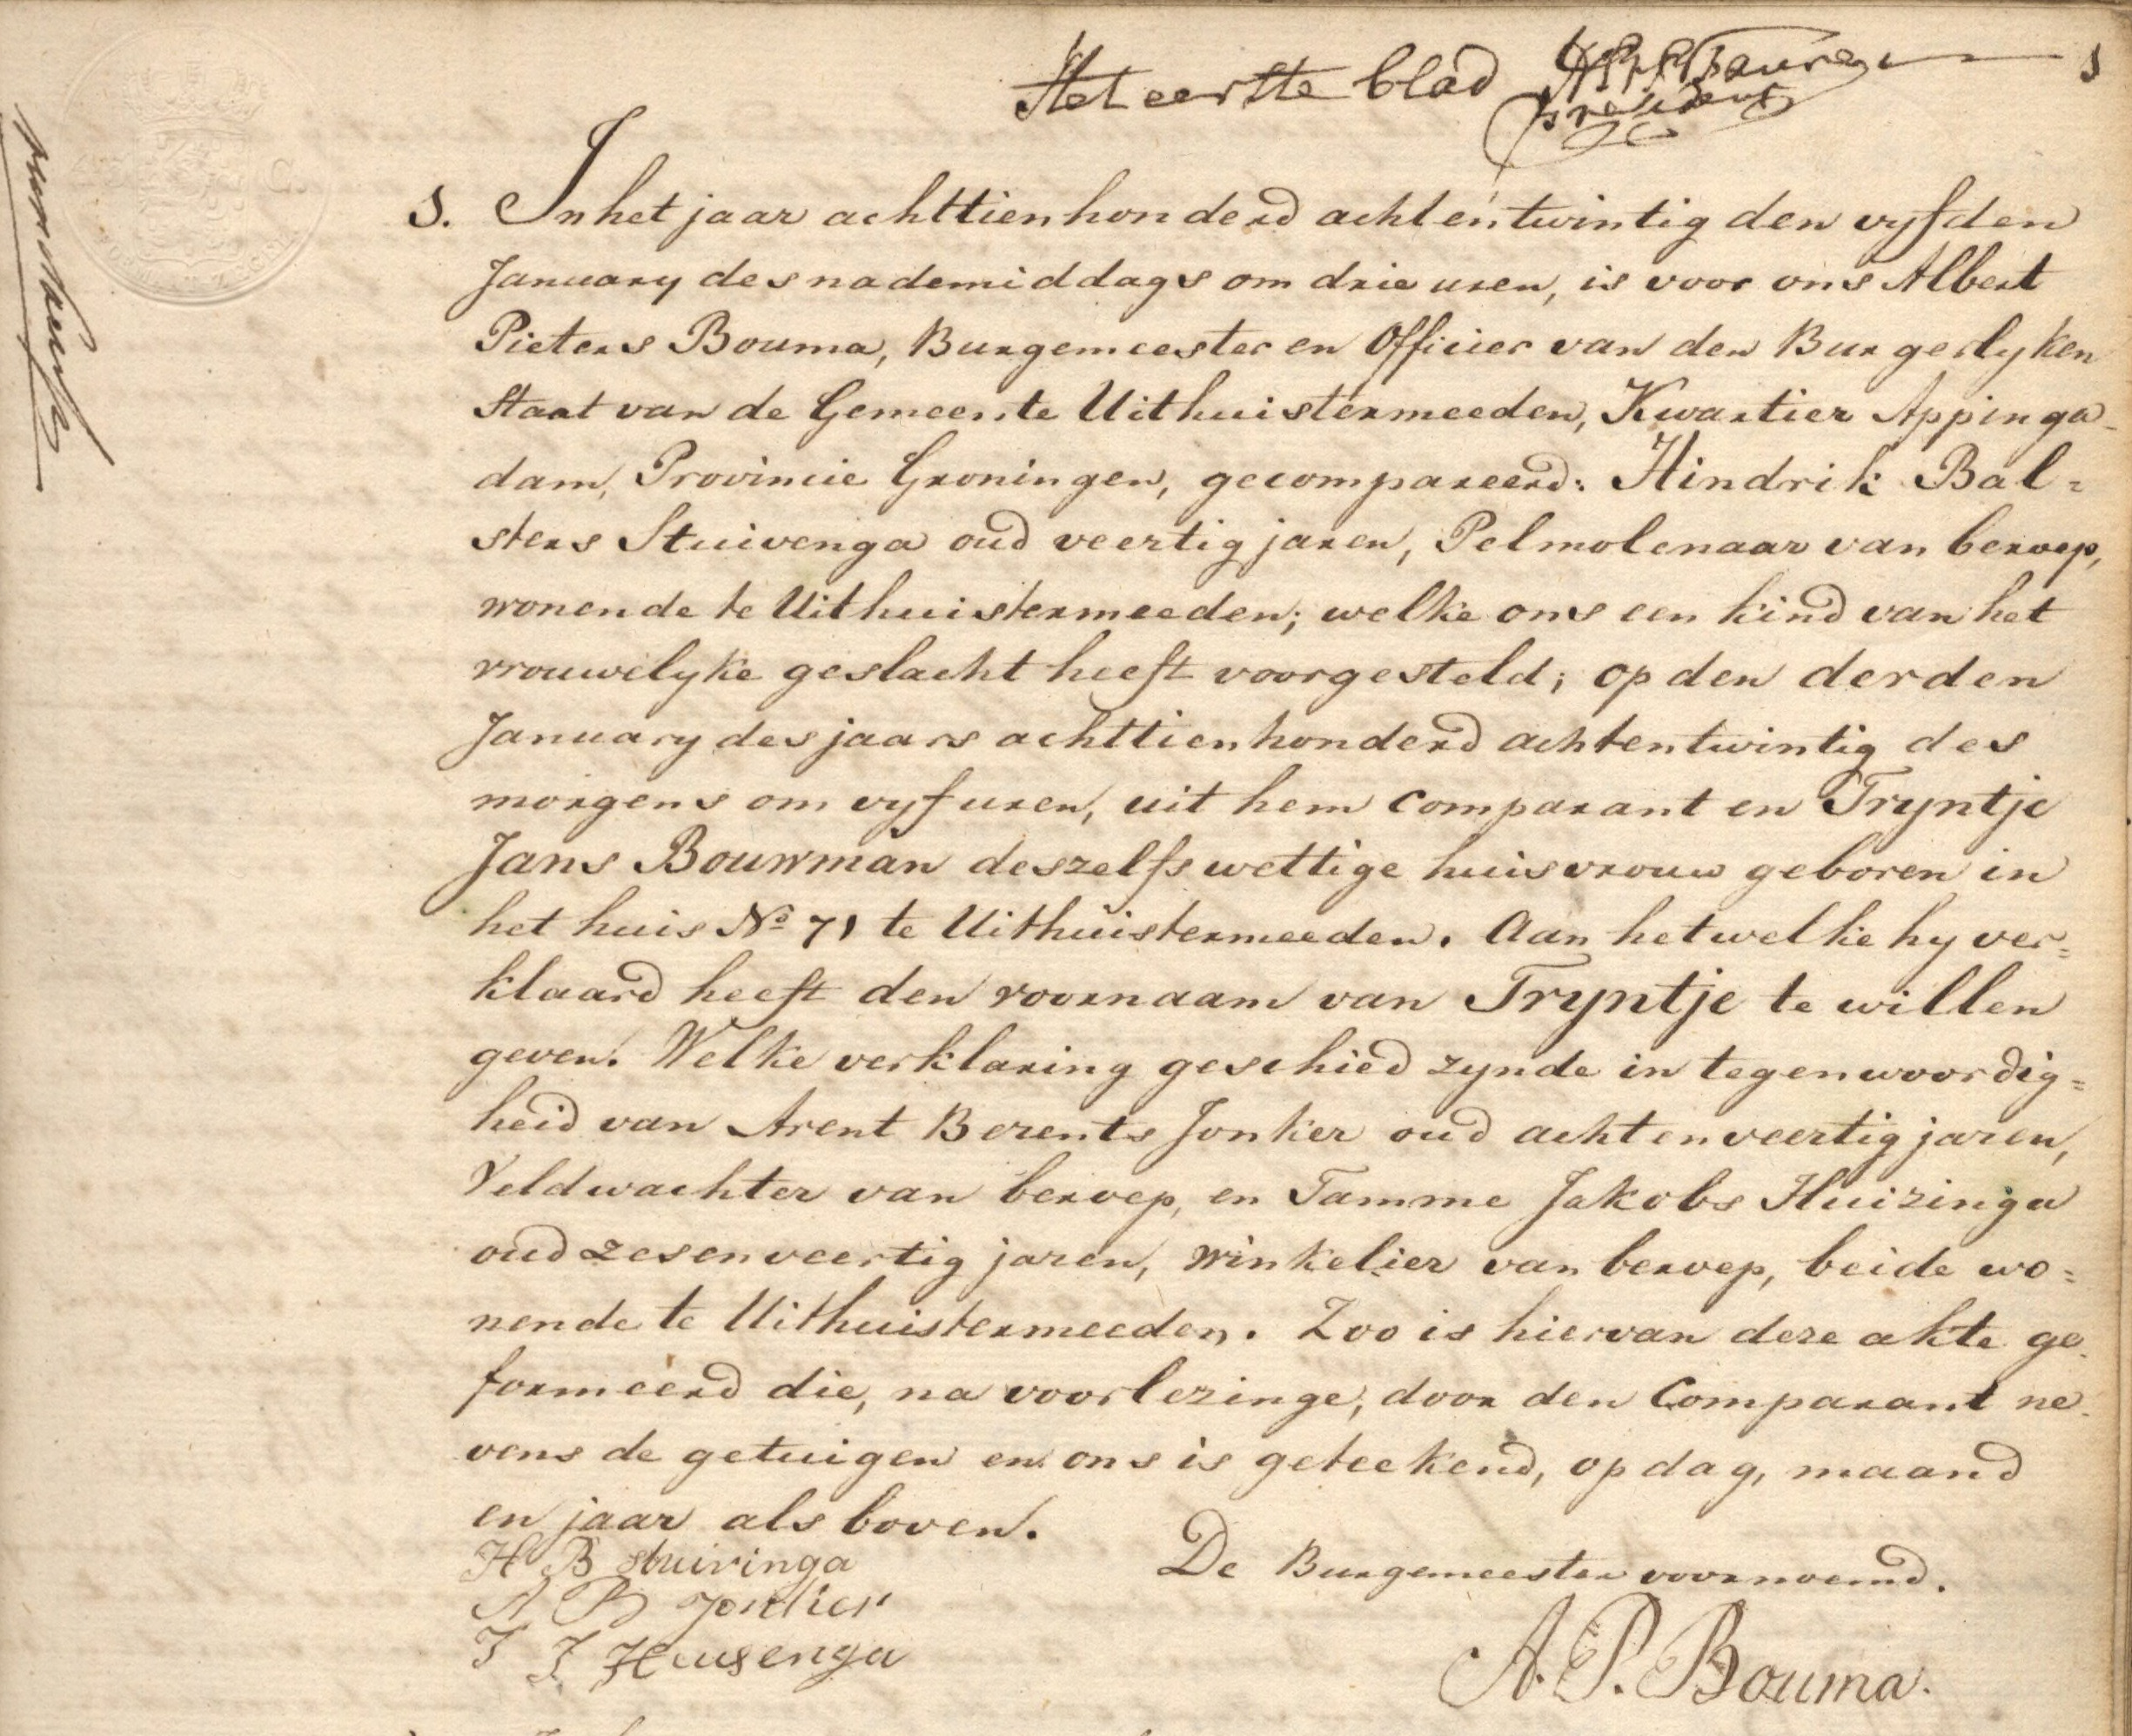 Het eerste blad
President
1
1. In het jaar achttienhonderd achtentwintig den vyfden
January des nademiddags om drie uren, is voor ons Albert
Pieters Bouma, Burgemeester en Officier van den Burgerlyken
Staat van de Gemeente Uithuistermeeden, Kwartier Appinga-
dam, Provincie Groningen, gecompareerd: Hindrik Bal=
sters Stuivenga oud veertig jaren, Pelmolenaar van beroep,
wonende te Uithuistermeeden; welke ons een kind van het
vrouwelyke geslacht heeft voorgesteld; op den derden
January des jaars achttienhonderd achtentwintig des
morgens om vyf uren, uit hem Comparant en Tryntje
Jans Bouwman deszelfs wettige huisvrouw geboren in
het huis No 71 te Uithuistermeeden. Aan hetwelke hy ver=
klaard heeft den voornaam van Tryntje te willen
geven. Welke verklaring geschied zynde in tegenwoordig=
heid van Arent Berents Jonker oud achtenveertig jaren,
Veldwachter van beroep, en Tamme Jakobs Huizinga
oud zesenveertig jaren, winkelier van beroep, beide wo=
nende te Uithuistermeeden. Zoo is hiervan deze akte ge-
formeerd die, na voorlezinge, door den Comparant ne-
vens de getuigen en ons is geteekend, op dag, maand
en jaar als boven.
H B Stuivinga
A B Jonker
T J Huisenga
De Burgemeester voornoemd.
A. P. Bouma.